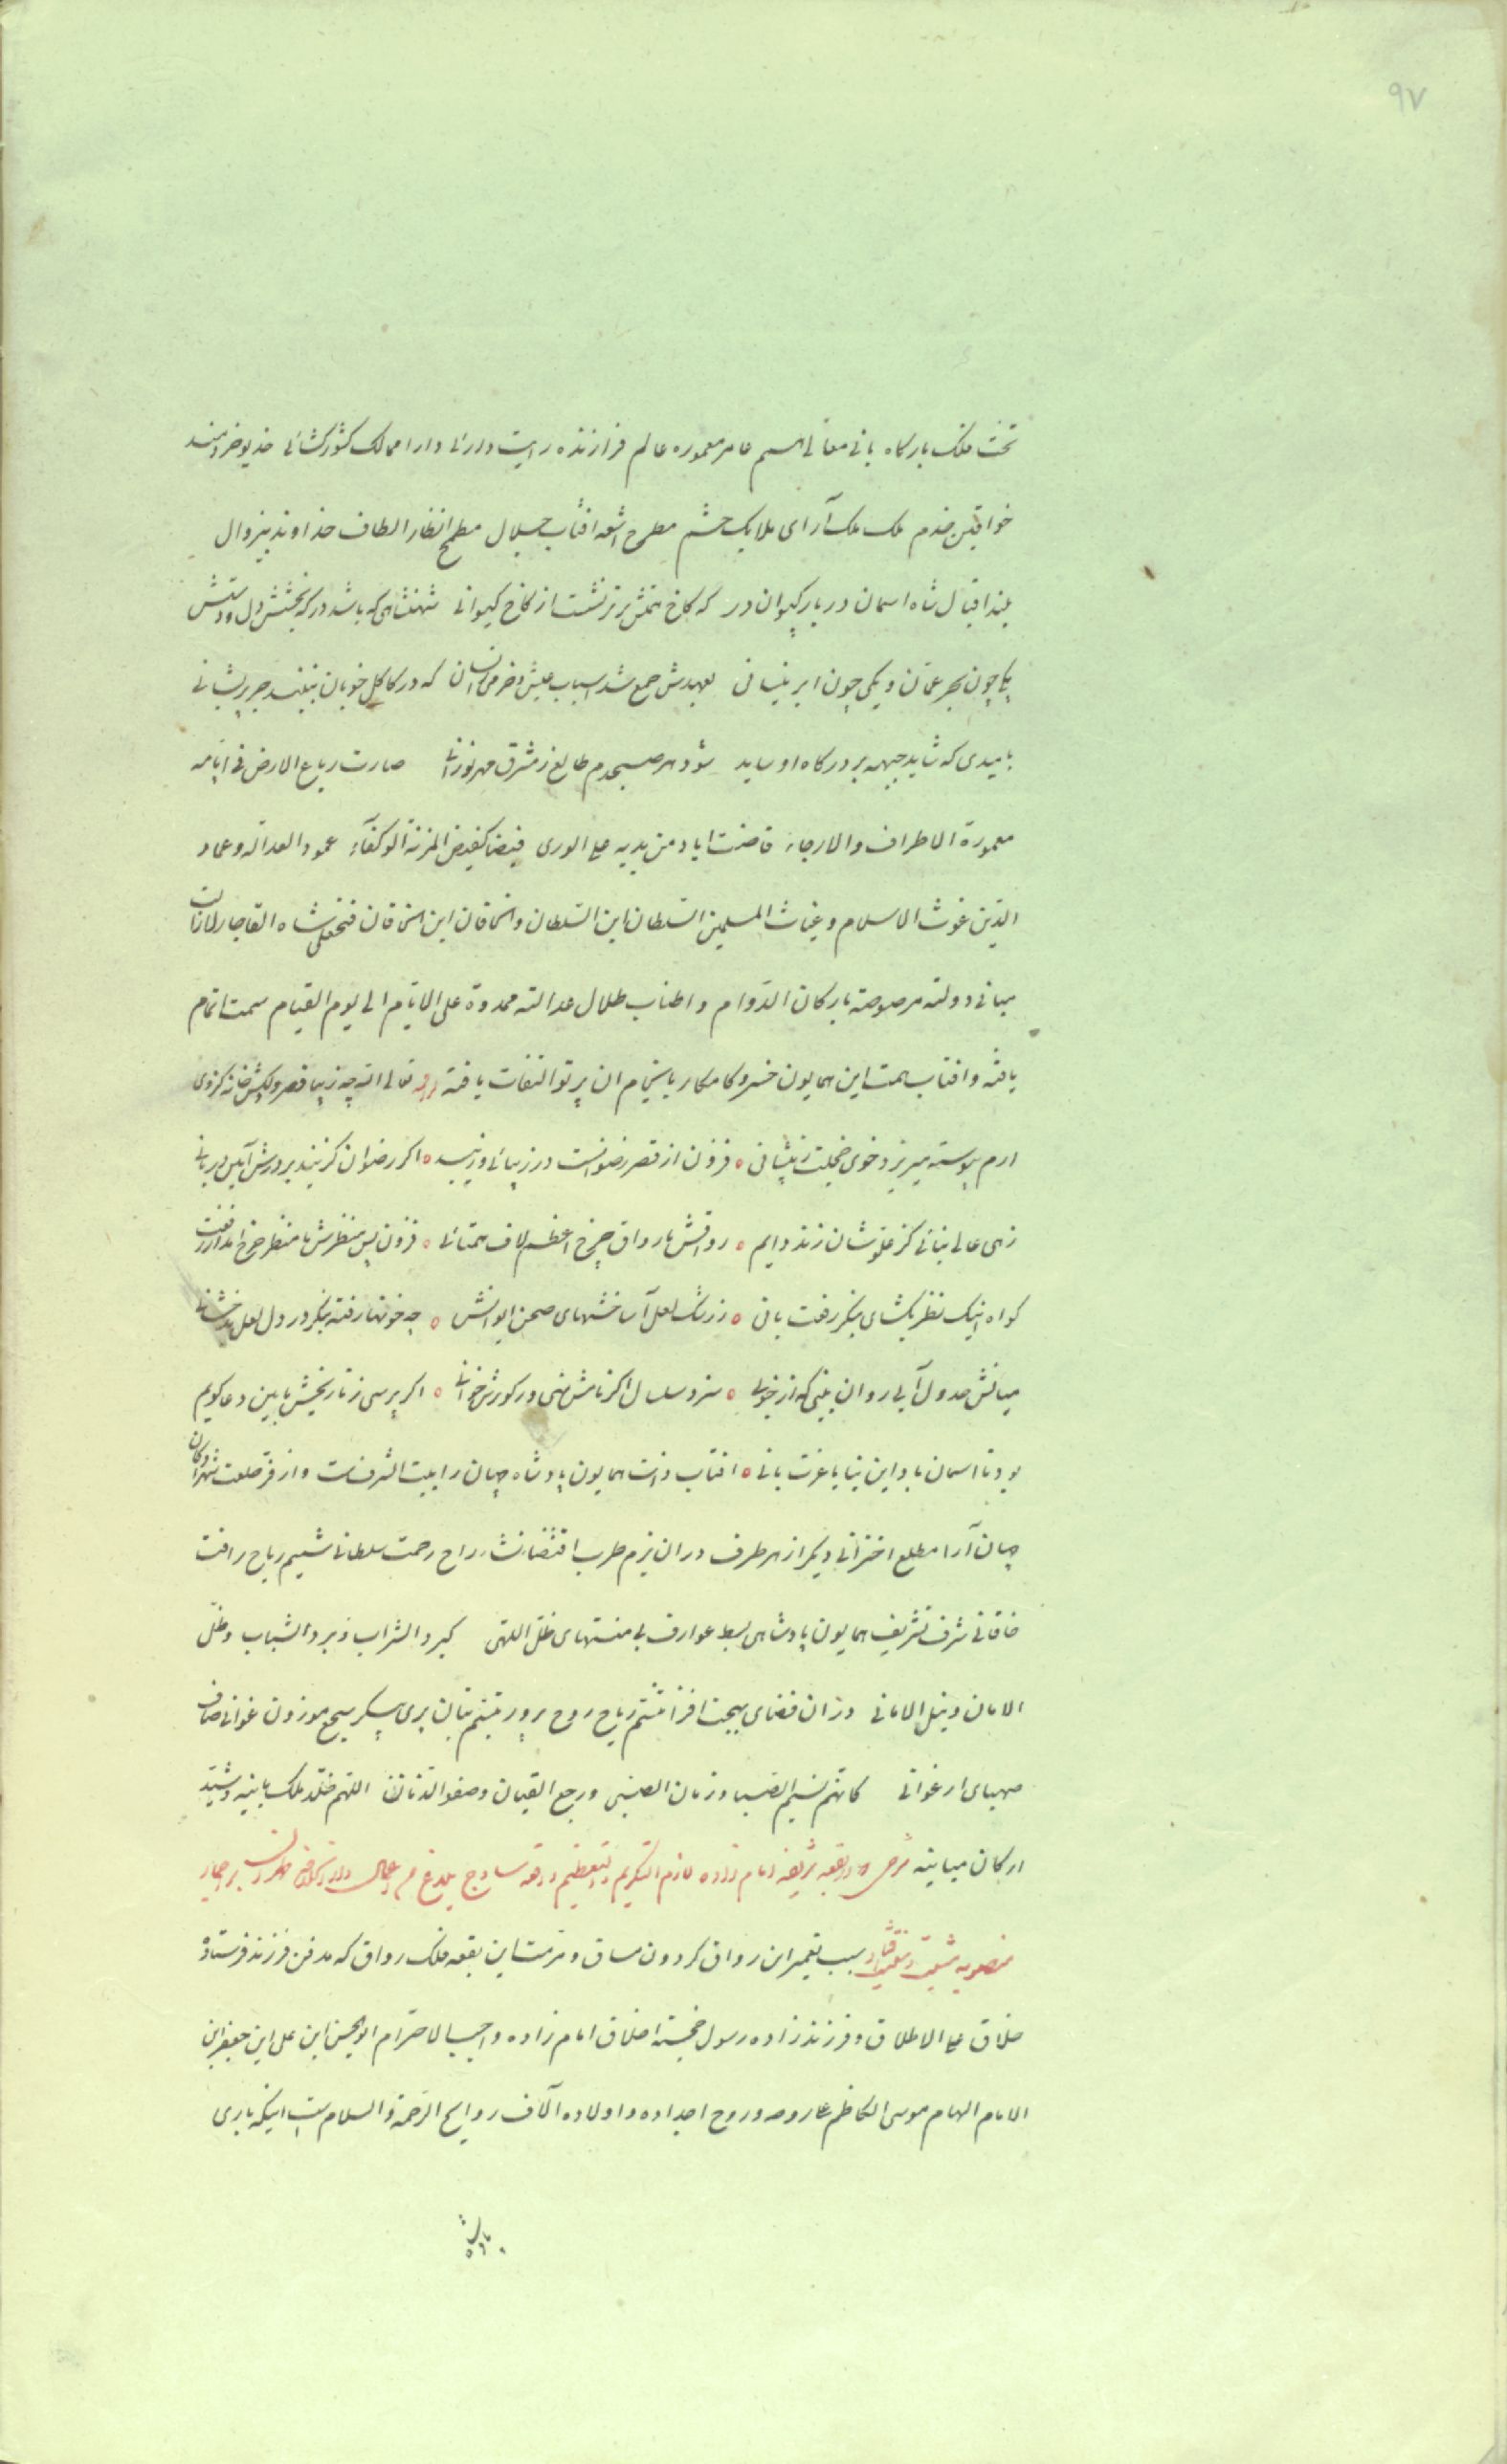 ۹۷
تخت فلک بارگاه بانی مبانی همم عامر معموره عالم فرازنده رایت دارائی دارا ممالک کشورکشائی خدیو خردمند
خواقین خدم ملک ملک آرای ملایک حشم مطرح اشعه افتاب جلال مطمح انظار الطاف خداوند بیزوال
بلند اقبال شاه اسمان دربار کیوان در که کاخ همتش برتر نشست از کاخ کیوانی شهنشاهی که باشد در که بخشش دل و دستش
یکی چون بحر عمان و یکی چون ابر نیسانی بعهدش جمع شد اسباب عیش و خرمی انسان که در کاکل خوبان نبیند جز پریشانی
بامیدی که شاید جبهه بر درکاه او ساید شود هر صبحدم طالع ز مشرق مهر نورانی صارت رباع الارض فی ایامه
معمورة الاطراف والارجاء فاضت ایاد من یدیه علی الوری فیضا کفیض المزنة الوکفآء عمود العدالة و عماد
الدین غوث الاسلام و غیاث المسلمین السلطان ابن السلطان والخاقان ابن الخاقان فتحعلی شاه القاجار لازالت
مبانی دولته مرصوصة بارکان الدوام و اطناب ظلال عدالته ممدودة علی الایام الی یوم القیام سمت اتمام
یافته و افتاب همت این همایون خسرو کامکار باتمام ان پرتو التفات یافته تعالی الله چه زیبا قصر دلکش خانه کزوی
ارم پیوسته میریزد خوی خجلت ز پیشانی ٥ فزون از قصر رضوانست در زیبائی و زینت ٥ اکر رضوان کزیند بر درش آیین دربانی
زهی عالی بنائی کز علو شان زند دایم ٥ رواقش با رواق چرخ اعظم لاف همتائی ٥ فزون بس منظرش با منظر چرخ اندر رفعت
کواه اینک نظر بکشای بنکر رفعت بانی ٥ ز رشک لعل آسا خشتهای صحن ایوانش ٥ چه خونها رفته بنکر در دل لعل بدخشانی
میانش جدول آبی روان بینی که از خوبی ٥ سزد سلسال اکر نامش نهی ور کوثرش خوانی ٥ اکر پرسی ز تاریخش باین دعا کویم
بود تا اسمان باد این بنا با عزت بانی ٥ افتاب ذات همایون پادشاه جهان را بیت الشرفست و از فر طلعت شهزادکان
جهان آرا مطلع اختراتی دیکر از هر طرف در ان بزم طرب اقتضا نشاء راح رحمت سلطانی شمیم ریاح رافت
خاقانی شرف تشریف همایون پادشاهی بسط عوارف بی منتهای ظل اللهی کبرد الشراب و برد الشباب و ظل
الامان و نیل الامانی در ان فضای بهجت افزا تنسم ریاح روح پرور تبسم بتان پری پیکر سجع موزون غوانی صاف
صهبای ارغوانی کانهم نسیم الصبا و زمان الصبی و رجع القیان و صفو الدنان اللهم خلد ملک بانیه و شید
ارکان مبانیه
بسبب تعمیر این رواق کردون مساق و مرمت این بقعه فلک رواق که مدفن فرزند فرستادهٔ
خلاق علی الاطلاق و فرزندزاده رسول خجسته اخلاق امام زاده واجب الاحترام ابوالحسن ابن علی ابن جعفر ابن
الامام الهمام موسی الکاظم علی روحه و روح اجداده و اولاده آلاف روایح الرحمة والسلام ست اینکه باری